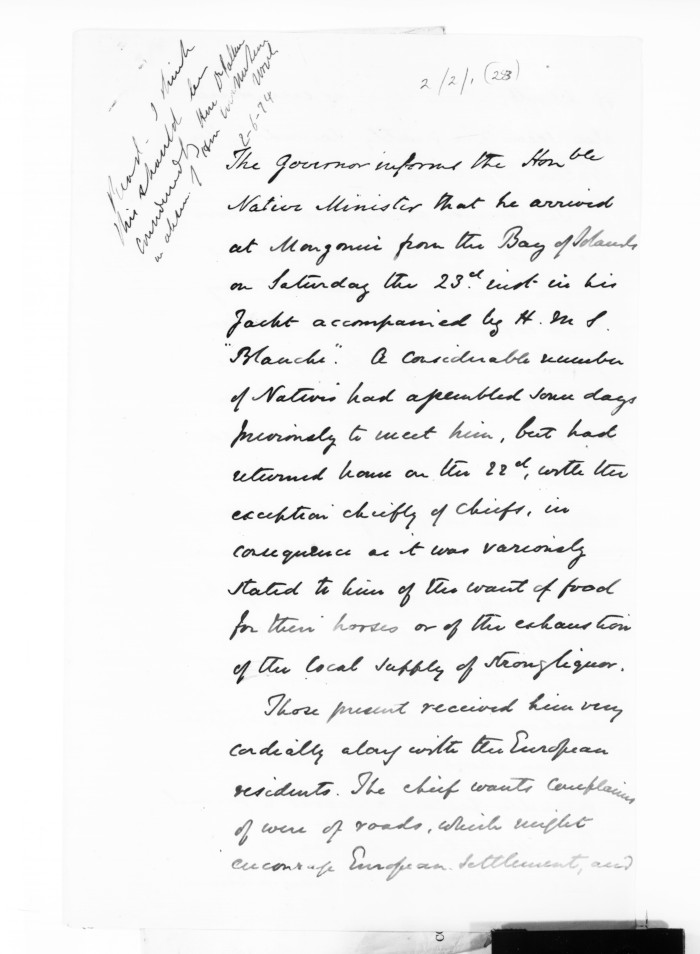 2/2/1 (283)
Read - I think
this should be
considered by
in absence of
2-6-74
The Governor informs the Honble
Native Minister that he arrived
at Mongonui from the Bay of Islands
on Saturday the 23d. inst in his
Yacht accompanied by H. M. S.
"Blanche". A considerable number
of Natives had assembled some days
previously to meet him, but had
returned home on the 22d, with the
exception chiefly of Chiefs, in
consequence as it was variously
stated to him of the want of food
for their horses or of the exhaustion
of the local supply of strong liquor.
Those present received him very
cordially along with the European
residents. The chief wants complained
of were of roads, which might
encourage European settlement, and